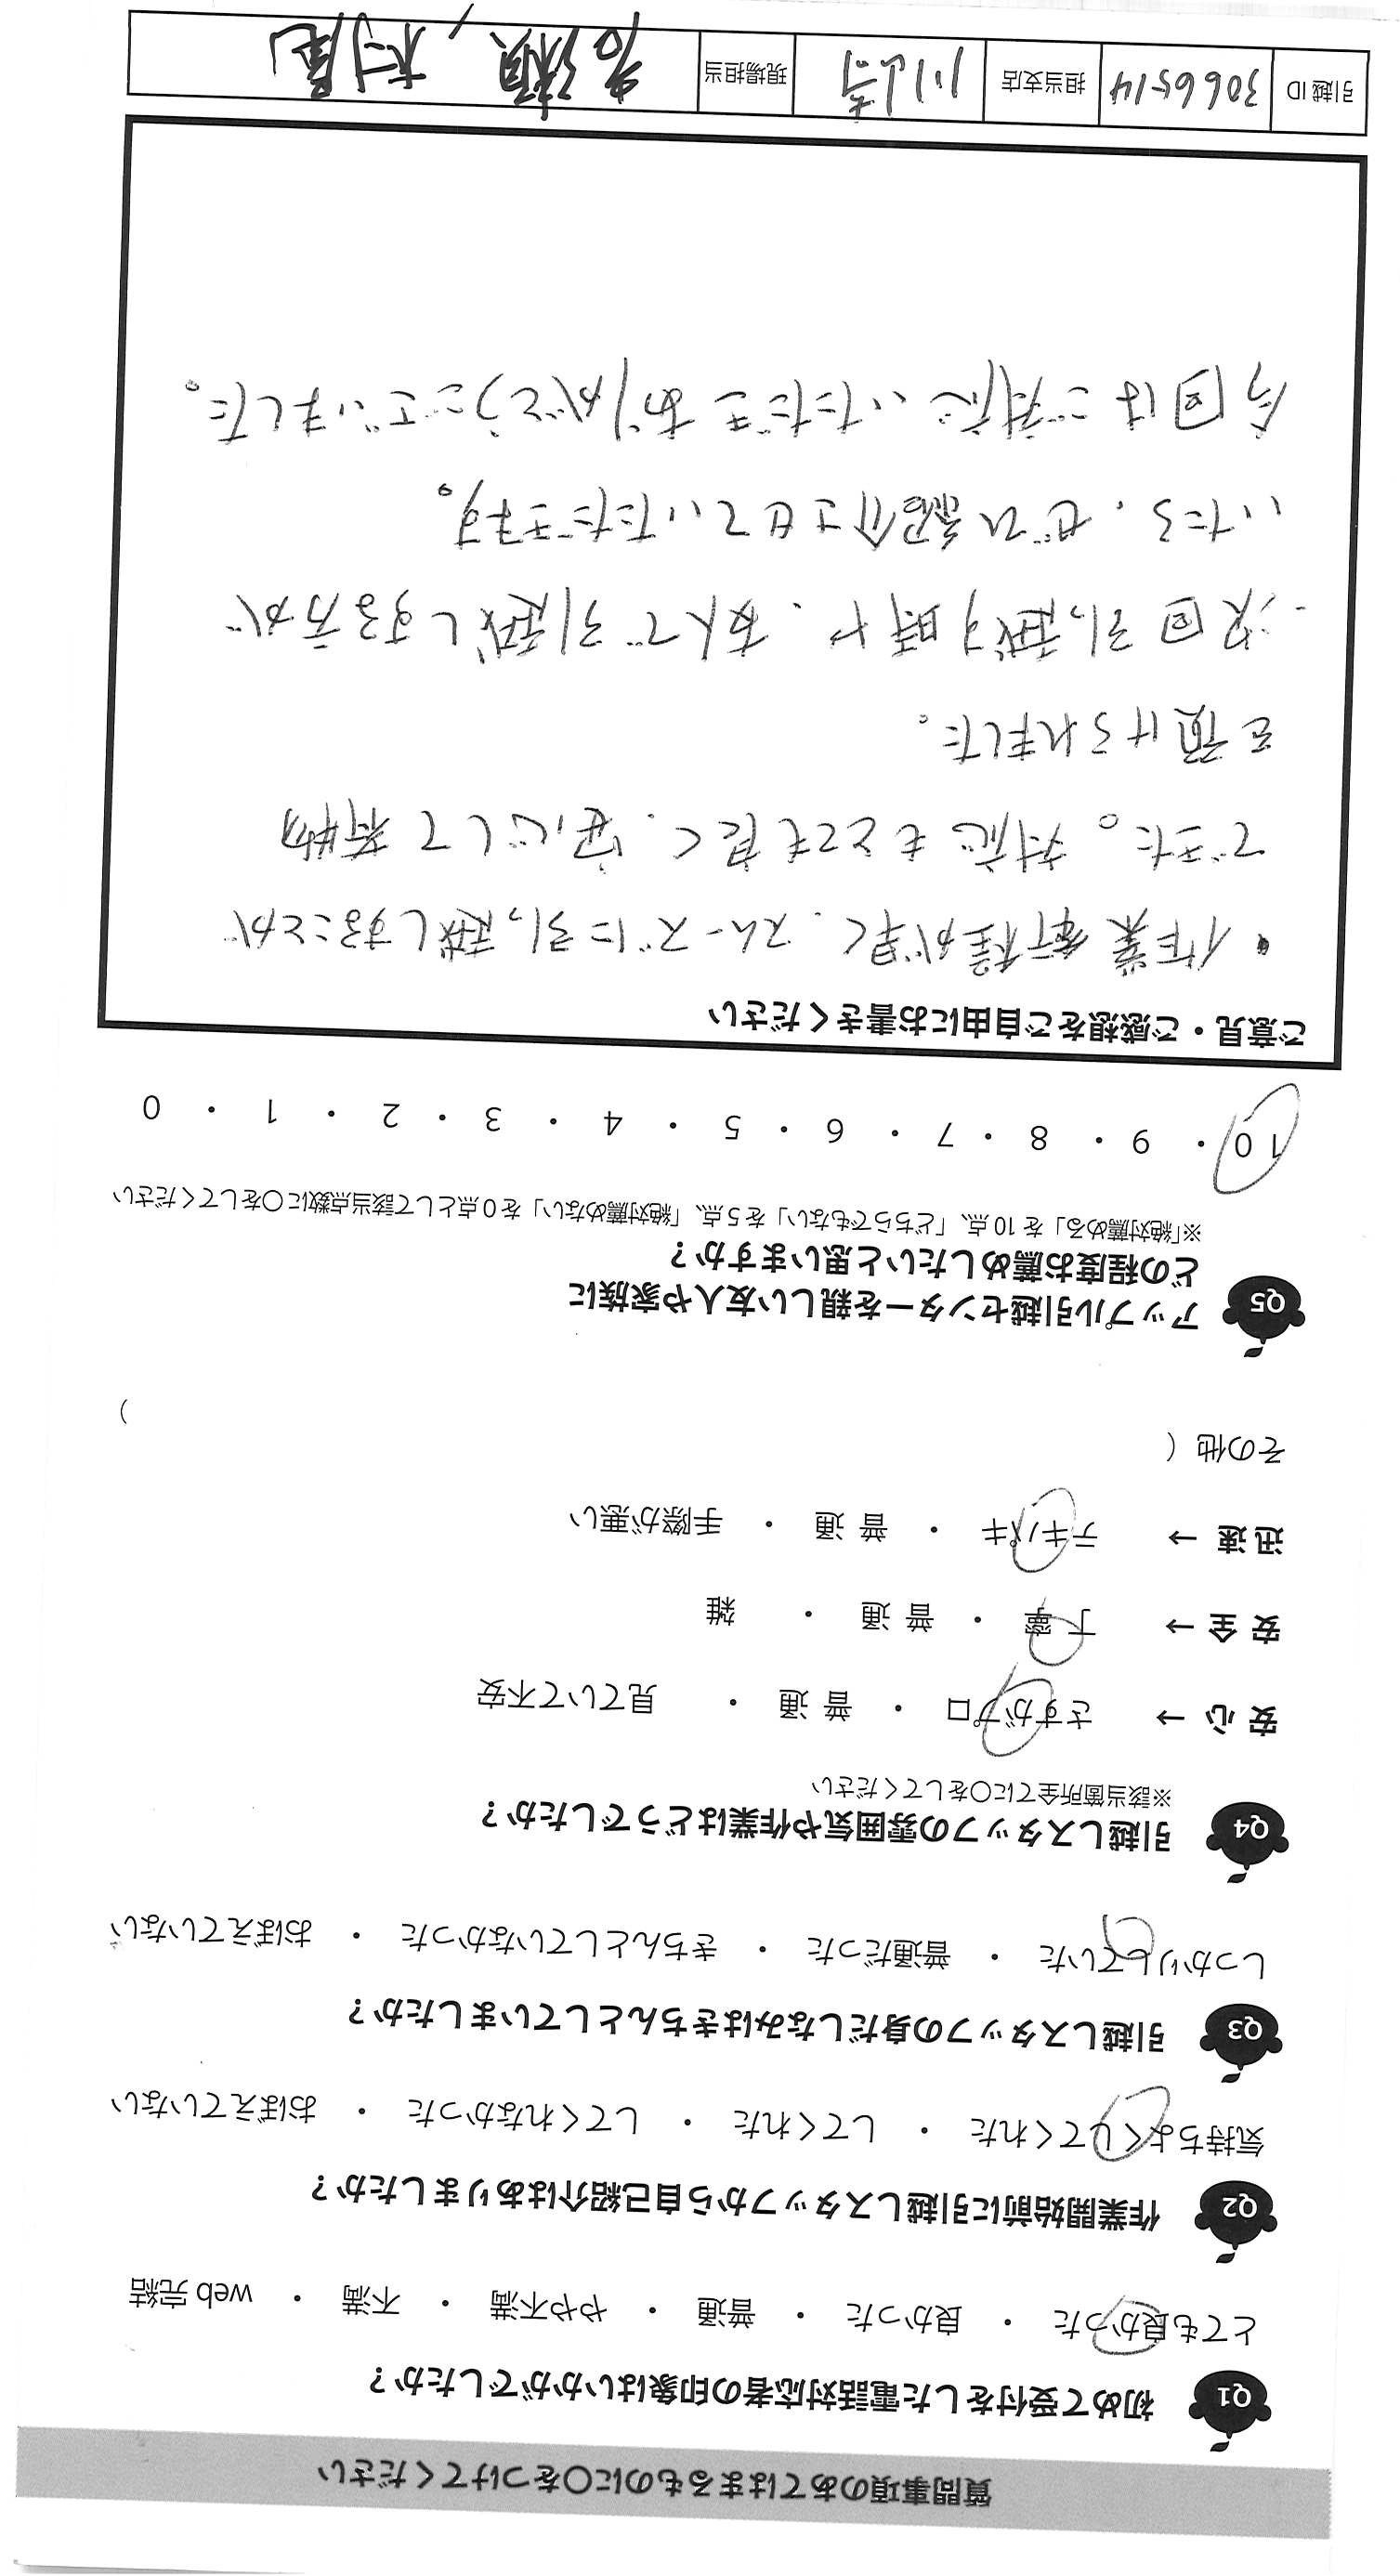 質問事項のあてはまるものに○をつけてください
Q1 初めて受付をした電話対応者の印象はいかがでしたか？
とても良かった ・ 良かった ・ 普通 ・ やや不満 ・ 不満 ・ web 完結
Q2 作業開始前に引越しスタッフから自己紹介はありましたか？
気持ちよくしてくれた ・ してくれた ・ してくれなかった ・ おぼえていない
Q3 引越しスタッフの身だしなみはきちんとしていましたか？
しっかりしていた ・ 普通だった ・ きちんとしていなかった ・ おぼえていない
Q4 引越しスタッフの雰囲気や作業はどうでしたか？
※該当箇所全てに○をしてください
安 心 → さすがプロ ・ 普 通 ・ 見ていて不安
安 全 → 丁 寧 ・ 普 通 ・ 雑
迅 速 → テキパキ ・ 普 通 ・ 手際が悪い
その他（ ）
Q5 アップル引越センターを親しい友人や家族に
どの程度お薦めしたいと思いますか？
※「絶対薦める」を 10 点、「どちらでもない」を 5 点、「絶対薦めない」を 0 点として該当点数に○をしてください
10 ・ 9 ・ 8 ・ 7 ・ 6 ・ 5 ・ 4 ・ 3 ・ 2 ・ 1 ・ 0
ご意見・ご感想をご自由にお書きください
・作業行程が早く、スムーズに引っ越しすることが
できた。対応もとても良く、安心して荷物
を預けられました。
・次回引っ越す時や、あんで引越しする方が
いたら、ぜひ紹介させていただきます。
今回はご対応いただきありがとうございました。
引越 ID 3066514 担当支店 川崎 現場担当 名瀬, 村尾